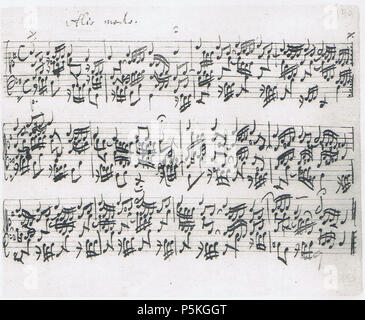 Alio modo.
P5KGGT